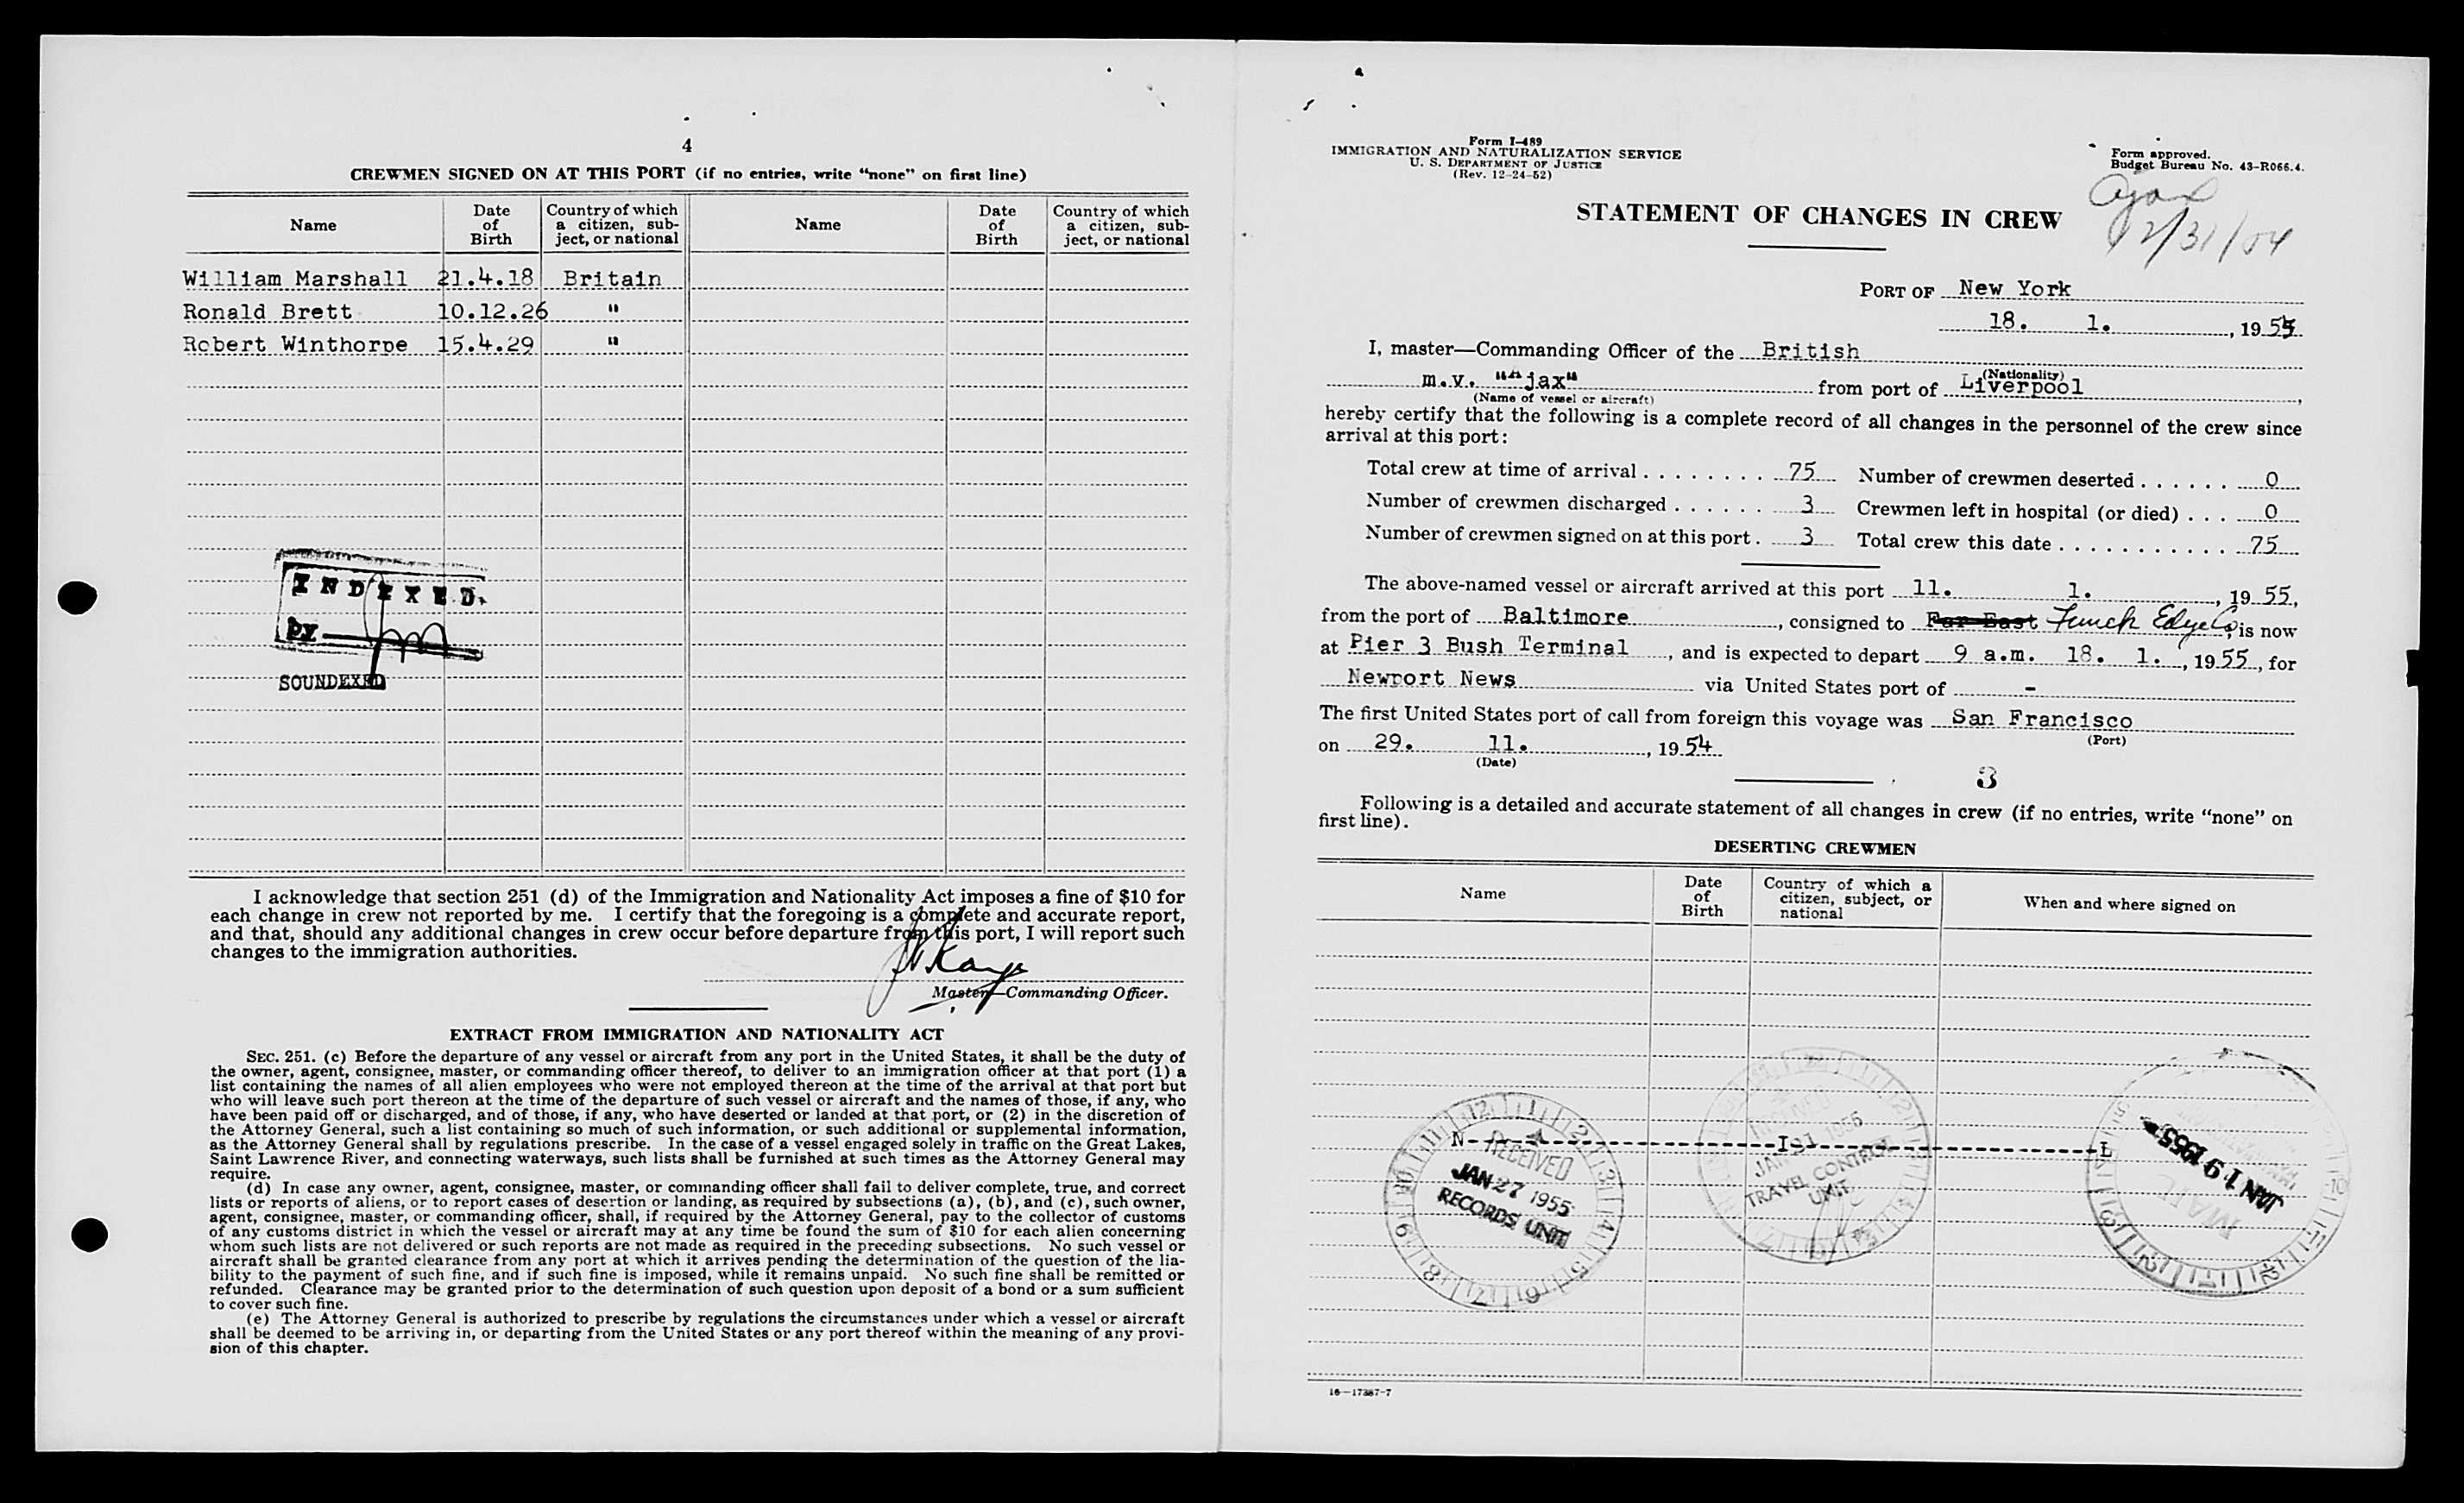 4
CREWMEN SIGNED ON AT THIS PORT (if no entries, write “none” on first line)
Name Date of Birth Country of which a citizen, subject, or national Name Date of Birth Country of which a citizen, subject, or national
William Marshall 21.4.18 Britain
Ronald Brett 10.12.26 "
Robert Winthorpe 15.4.29 "
INDEXED
by
SOUNDEXED
I acknowledge that section 251 (d) of the Immigration and Nationality Act imposes a fine of $10 for
each change in crew not reported by me. I certify that the foregoing is a complete and accurate report,
and that, should any additional changes in crew occur before departure from this port, I will report such
changes to the immigration authorities.
Master—Commanding Officer.
EXTRACT FROM IMMIGRATION AND NATIONALITY ACT
SEC. 251. (c) Before the departure of any vessel or aircraft from any port in the United States, it shall be the duty of
the owner, agent, consignee, master, or commanding officer thereof, to deliver to an immigration officer at that port (1) a
list containing the names of all alien employees who were not employed thereon at the time of the arrival at that port but
who will leave such port thereon at the time of the departure of such vessel or aircraft and the names of those, if any, who
have been paid off or discharged, and of those, if any, who have deserted or landed at that port, or (2) in the discretion of
the Attorney General, such a list containing so much of such information, or such additional or supplemental information,
as the Attorney General shall by regulations prescribe. In the case of a vessel engaged solely in traffic on the Great Lakes,
Saint Lawrence River, and connecting waterways, such lists shall be furnished at such times as the Attorney General may
require.
(d) In case any owner, agent, consignee, master, or commanding officer shall fail to deliver complete, true, and correct
lists or reports of aliens, or to report cases of desertion or landing, as required by subsections (a), (b), and (c), such owner,
agent, consignee, master, or commanding officer, shall, if required by the Attorney General, pay to the collector of customs
of any customs district in which the vessel or aircraft may at any time be found the sum of $10 for each alien concerning
whom such lists are not delivered or such reports are not made as required in the preceding subsections. No such vessel or
aircraft shall be granted clearance from any port at which it arrives pending the determination of the question of the lia-
bility to the payment of such fine, and if such fine is imposed, while it remains unpaid. No such fine shall be remitted or
refunded. Clearance may be granted prior to the determination of such question upon deposit of a bond or a sum sufficient
to cover such fine.
(e) The Attorney General is authorized to prescribe by regulations the circumstances under which a vessel or aircraft
shall be deemed to be arriving in, or departing from the United States or any port thereof within the meaning of any provi-
sion of this chapter.
Form I-489
IMMIGRATION AND NATURALIZATION SERVICE
U. S. DEPARTMENT OF JUSTICE
(Rev. 12-24-52)
Form approved.
Budget Bureau No. 43-R066.4.
Ajax
12/31/54
STATEMENT OF CHANGES IN CREW
PORT OF New York
18. 1., 1955
I, master—Commanding Officer of the British
(Nationality)
m.v. "Ajax" from port of Liverpool,
(Name of vessel or aircraft)
hereby certify that the following is a complete record of all changes in the personnel of the crew since
arrival at this port:
Total crew at time of arrival 75 Number of crewmen deserted 0
Number of crewmen discharged 3 Crewmen left in hospital (or died) 0
Number of crewmen signed on at this port 3 Total crew this date 75
The above-named vessel or aircraft arrived at this port 11. 1., 1955,
from the port of Baltimore, consigned to Far East Funch Edye Co, is now
at Pier 3 Bush Terminal, and is expected to depart 9 a.m. 18. 1., 1955, for
Newport News via United States port of -
The first United States port of call from foreign this voyage was San Francisco
(Port)
on 29. 11., 1954
(Date)
3
Following is a detailed and accurate statement of all changes in crew (if no entries, write “none” on
first line).
DESERTING CREWMEN
Name Date of Birth Country of which a citizen, subject, or national When and where signed on
N I L
RECEIVED
JAN 27 1955
RECORDS UNIT
JAN 21 1955
TRAVEL CONTROL
UNIT
JAN 19 1955
MAIL
16—17387-7